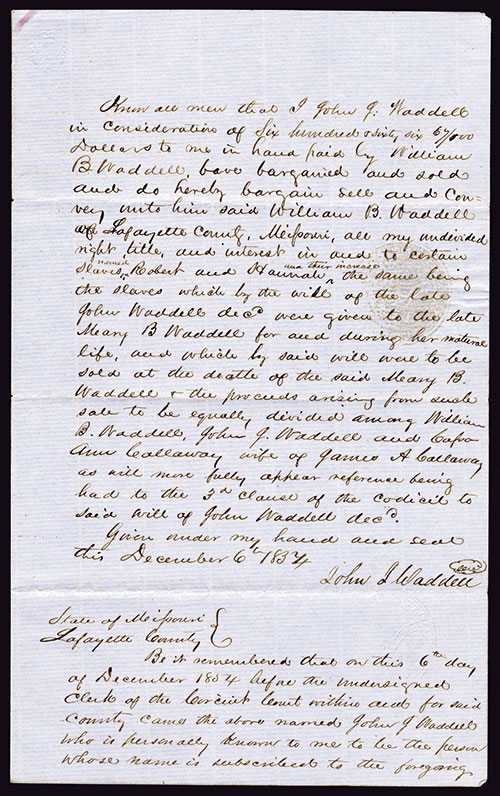 Know all men that I John J. Waddell
in consideration of Six hundred & sixty six 67/100
Dollars to me in hand paid by William
B. Waddell, have bargained and sold
and do hereby bargain sell and con-
vey unto him said William B. Waddell
of Lafayette County, Missouri, all my undivided
right title, and interest in and to certain
slaves, named Robert and Hannah and their increase the same being
the slaves which by the will of the late
John Waddell decd were given to the late
Meary B Waddell for and during her natural
life, and which by said will were to be
sold at the death of the said Meary B.
Waddell & the proceeds arising from such
sale to be equally divided among William
B. Waddell, John J. Waddell and
Ann Callaway wife of James A Callaway
as will more fully appear reference being
had to the 3d clause of the codicil to
said will of John Waddell decd.
Given under my hand and seal
this December 6th 1854
John J Waddell seal
State of Missouri
Lafayette County
Be it remembered that on this 6th day
of December 1854 before the undersigned
Clerk of the Circuit Court within and for said
county came the above named John J Waddell
who is personally known to me to be the person
whose name is subscribed to the foregoing